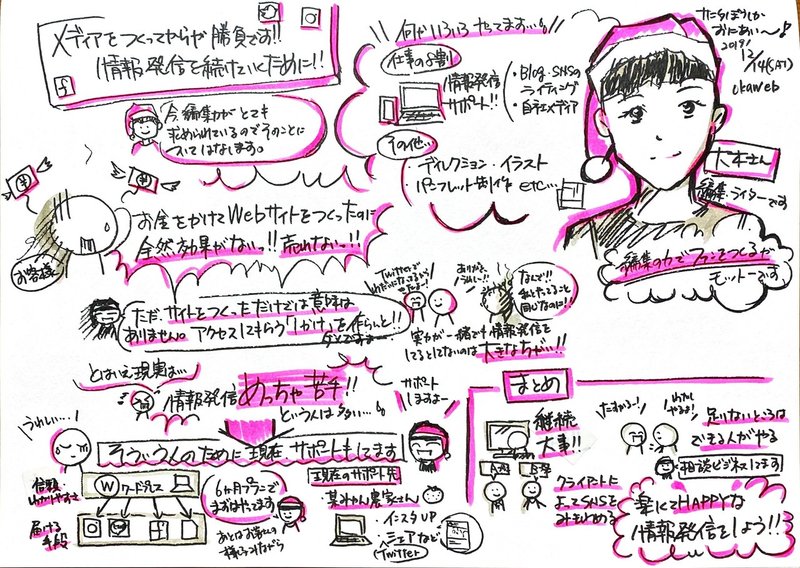 メディアをつくってからが勝負です!!
情報発信を続けていくために!!
今編集力がとても
求められているのでそのことに
ついてはなします。
何かいろいろやってます…
仕事の8割
情報発信
サポート!!
・Blog・SNSの
ライティング
・自社メディア
その他…
・ディレクション・イラスト
・パンフレット制作 etc…
サンタぼうしが
おにあい〜♪
2019/
12/14(SAT)
ukaweb
大本さん
編集・ライターです
編集の力でファンをつくるが
モットーです
¥
¥
お客様
お金をかけてWebサイトをつくったのに
全然効果がないっ!! 売れないっ!!
ただ、サイトをつくっただけでは意味は
ありません。アクセスしてもらう「しかけ」を作らんと!!
ダメですよ
Twitterで
ありがとー
うれしー!!
なんで!!
私もやってること
同じなのに!!
実力が一緒でも情報発信を
してるとしてないのは大きなちがい!!
とはいえ現実は…
情報発信めっちゃ苦手!!
という人は多い…
サポート
しますよー
うれしい…!
そういう人のために現在、サポートもしてます
信頼
わかりやすさ
W ワードプレス
届ける
手段
6ヶ月プランで
まずはやってます
あとはお客さんの
様子をみながら
現在のサポート先
某みかん農家さん
・インスタUP
・シェアなど
(Twitter)
まとめ
継続
大事!!
クライアントに
よってSNSを
みきわめる
たすかるー!
わたし
やるよ!
足りないところは
できる人がやる
相談ビジネスにます!
楽しくてHAPPYな
情報発信をしよう!!